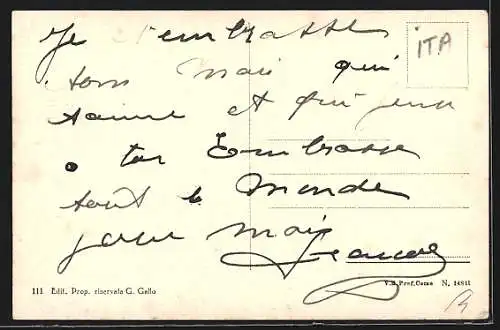 Je t'embrasse
ITA
tous mais qui
t'aime et qui
a toi Embrasse
tout le Monde
pour moi
111 Edit. Prop. riservata G. Gallo
V.B. Prof. Como N. 14811